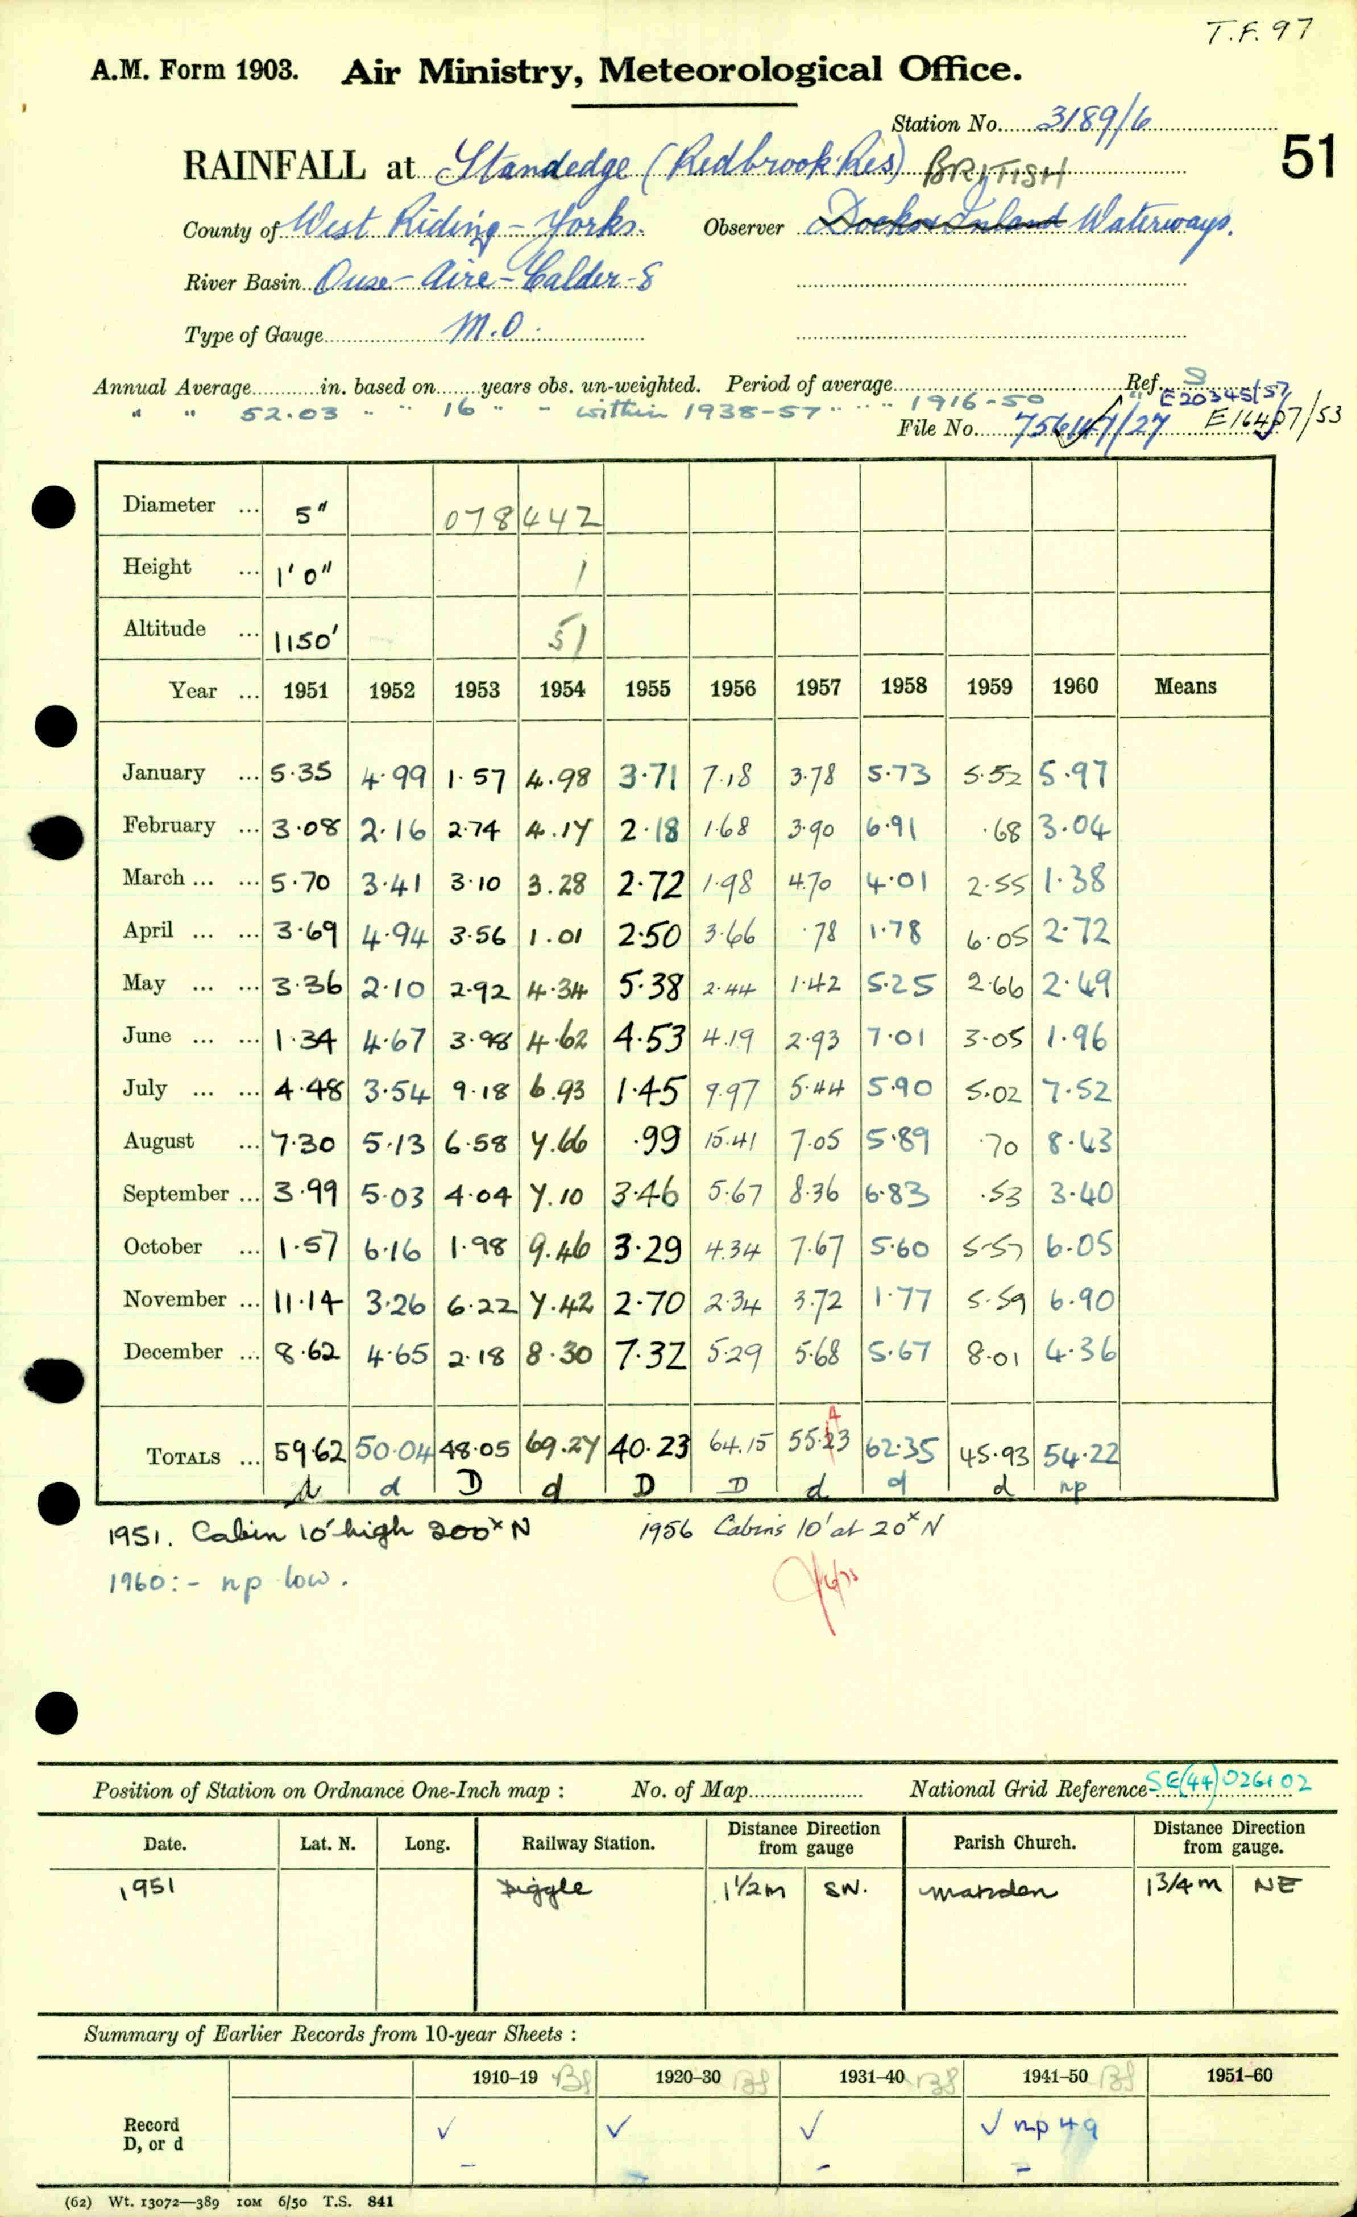 T.F. 97
A.M. Form 1903. Air Ministry, Meteorological Office.
Station No. 3189/6
51
RAINFALL at Standedge (Redbrook Res) BRITISH
County of West Riding - Yorks. Observer Docks & Inland Waterways.
River Basin Ouse - Aire - Calder - 8
Type of Gauge M.O.
Annual Average in. based on years obs. un-weighted. Period of average Ref. S
" " 52.03 " " 16 " - within 1938-57 " " " 1916-50 " E20345/57
File No. E16407/53
Diameter ... 5" 078 442
Height ... 1' 0" 1
Altitude ... 1150' 51
Year ... 1951 1952 1953 1954 1955 1956 1957 1958 1959 1960 Means
January ... 5.35 4.99 1.57 4.98 3.71 7.18 3.78 5.73 5.52 5.97
February ... 3.08 2.16 2.74 4.17 2.18 1.68 3.90 6.91 .68 3.04
March ... ... 5.70 3.41 3.10 3.28 2.72 1.98 4.70 4.01 2.55 1.38
April ... ... 3.69 4.94 3.56 1.01 2.50 3.66 .78 1.78 6.05 2.72
May ... ... 3.36 2.10 2.92 4.34 5.38 2.44 1.42 5.25 2.66 2.49
June ... ... 1.34 4.67 3.98 4.62 4.53 4.19 2.93 7.01 3.05 1.96
July ... ... 4.48 3.54 9.18 6.93 1.45 9.97 5.44 5.90 5.02 7.52
August ... 7.30 5.13 6.58 7.66 .99 15.41 7.05 5.89 .70 8.43
September ... 3.99 5.03 4.04 7.10 3.46 5.67 8.36 6.83 .53 3.40
October ... 1.57 6.16 1.98 9.46 3.29 4.34 7.67 5.60 5.57 6.05
November ... 11.14 3.26 6.22 7.42 2.70 2.34 3.72 1.77 5.59 6.90
December ... 8.62 4.65 2.18 8.30 7.32 5.29 5.68 5.67 8.01 4.36
4
TOTALS ... 59.62 50.04 48.05 69.27 40.23 64.15 55.23 62.35 45.93 54.22
d d D d D D d d d np
1951. Cabin 10' high 200ˣ N 1956 Cabins 10' at 20ˣ N
1960:- np low.
Position of Station on Ordnance One-Inch map : No. of Map National Grid Reference SE(44) 026102
Date. Lat. N. Long. Railway Station. Distance Direction from gauge Parish Church. Distance Direction from gauge.
1951 Diggle 1½m SW. Marsden 1¾m NE
Summary of Earlier Records from 10-year Sheets :
1910–19 1920–30 1931–40 1941–50 1951–60
Record D, or d ✓ ✓ ✓ ✓ np 49
(62) Wt. 13072—389 10M 6/50 T.S. 841